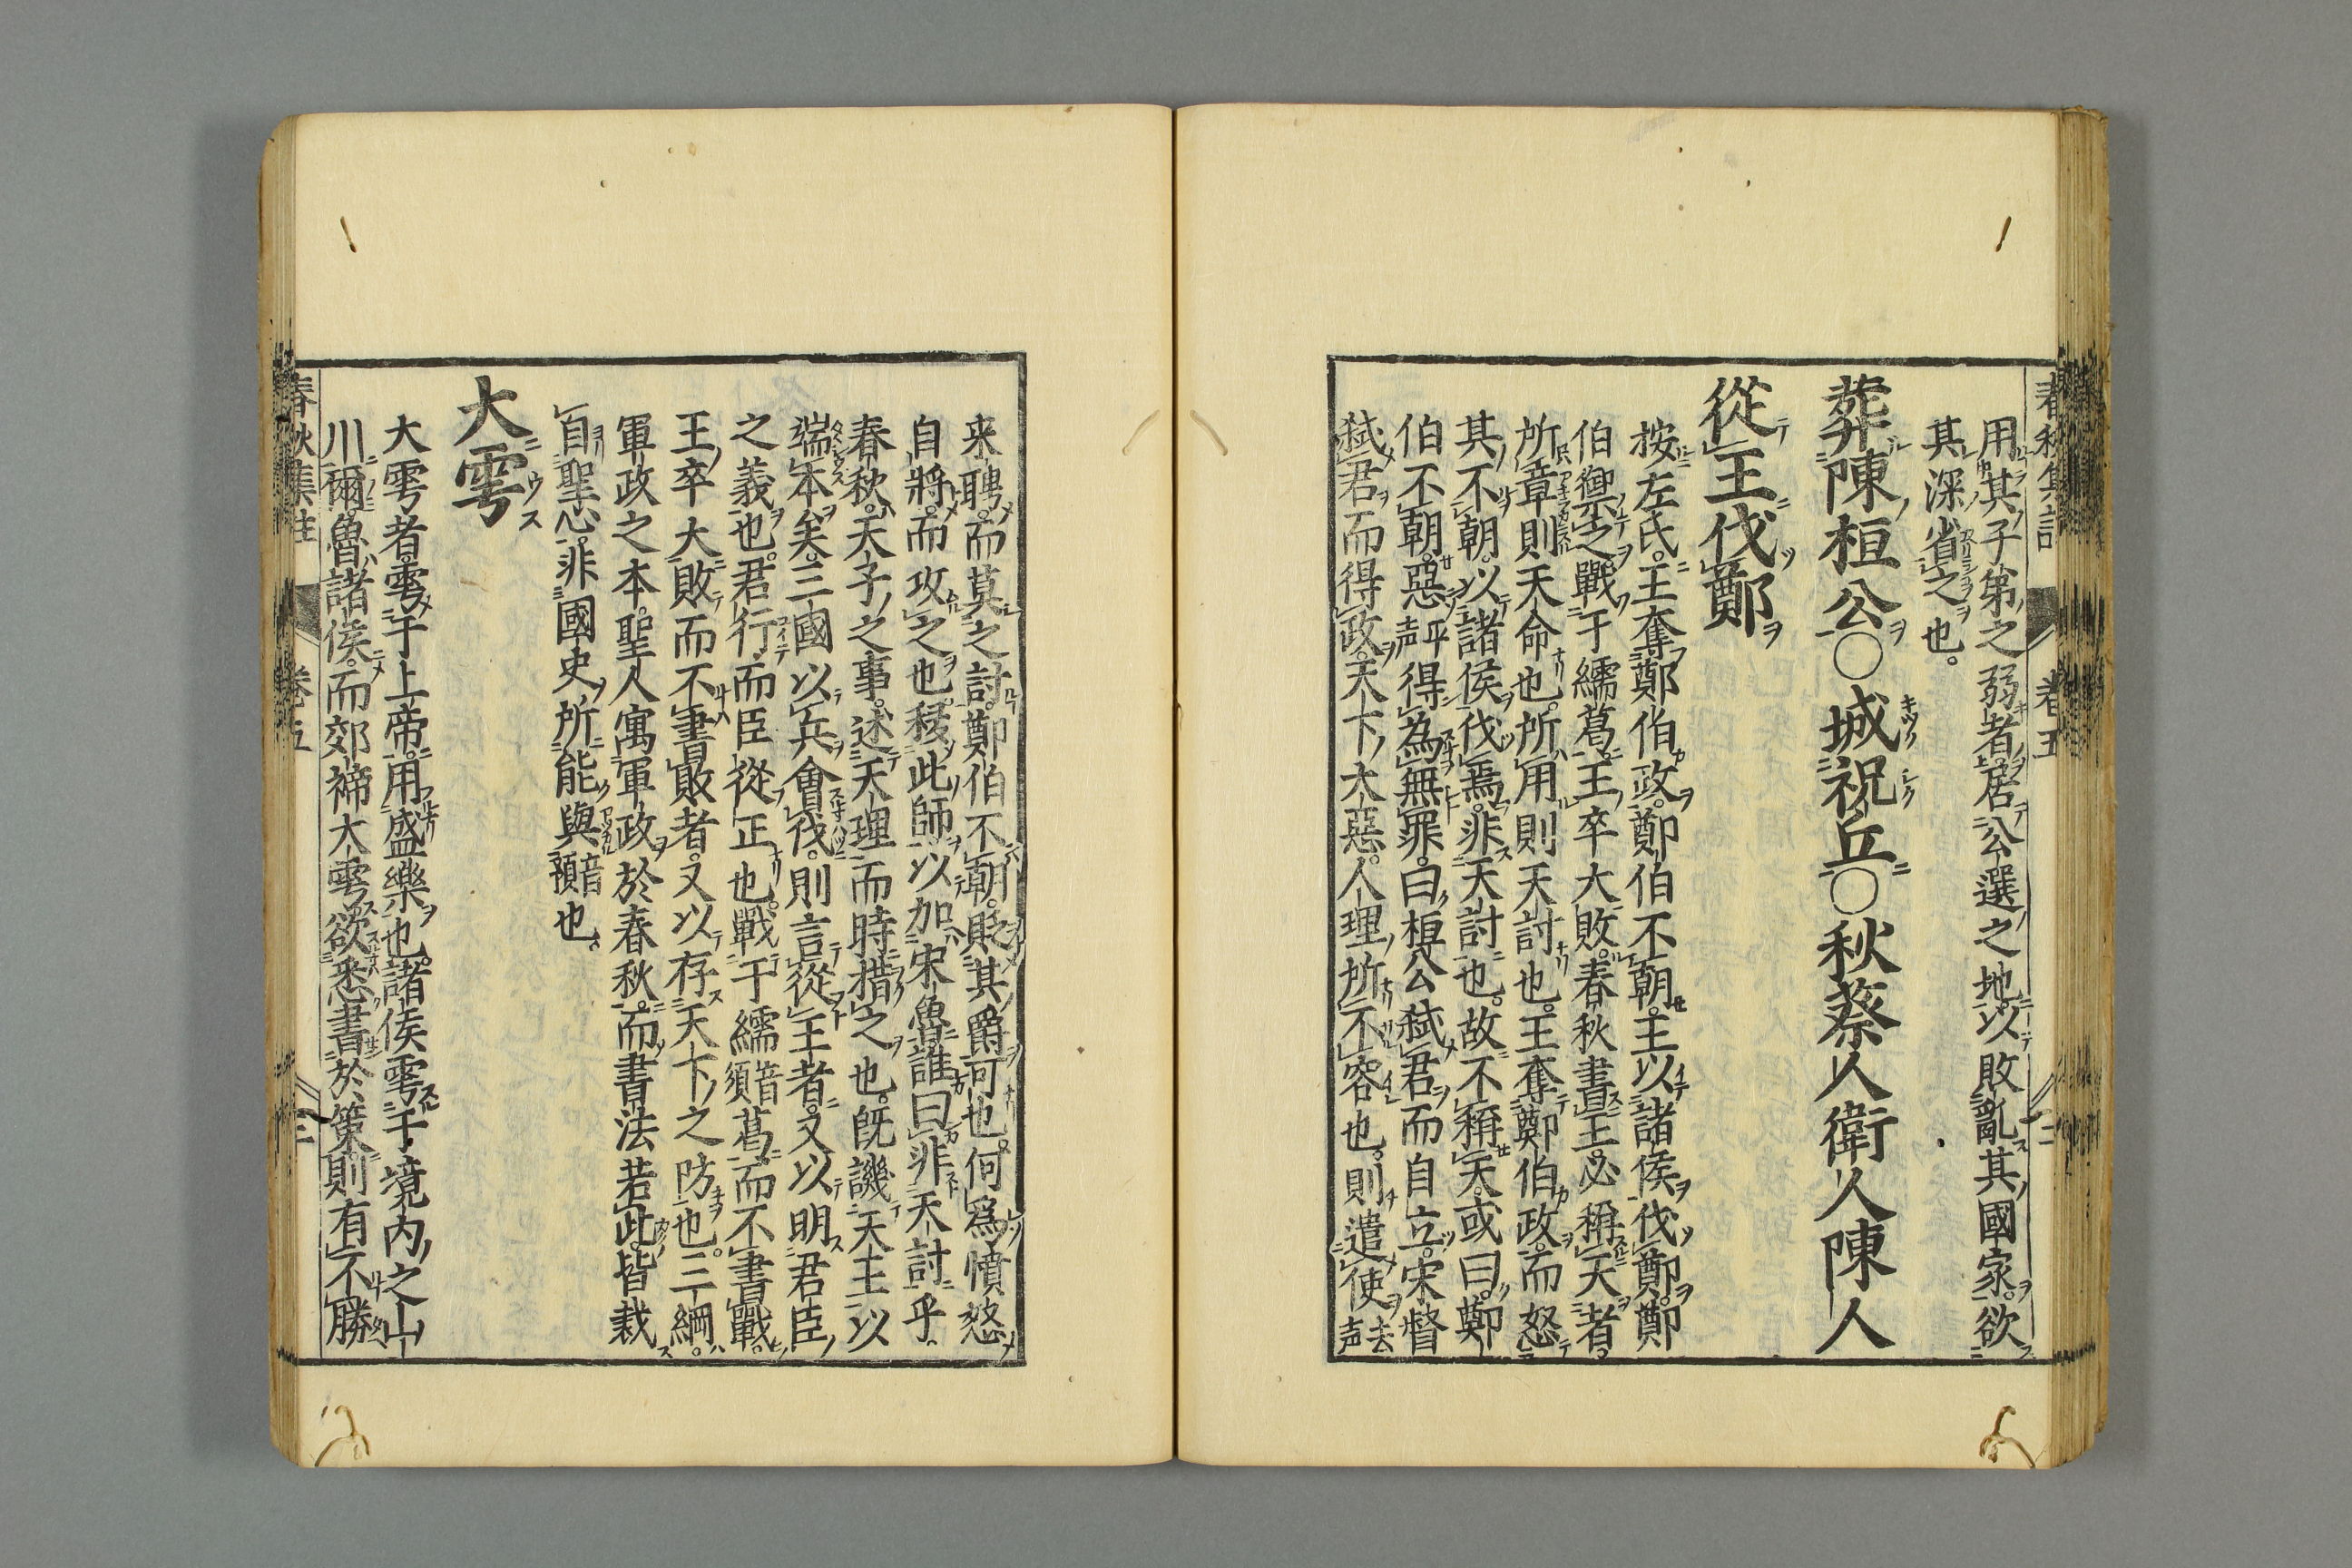 春秋集註 卷五 二
用其子弟之弱者居公選之地以敗亂其國家欲
其深省之也。
葬陳桓公〇城祝丘〇秋蔡人衛人陳人
從王伐鄭
按左氏王奪鄭伯政。鄭伯不朝。王以諸侯伐鄭。鄭
伯禦之戰于繻葛。王卒大敗。春秋書王必稱天者。
所章則天命也。所用則天討也。王奪鄭伯政。而怒
其不朝。以諸侯伐焉。非天討也。故不稱天。或曰鄭
伯不朝。惡平声得為無罪。曰桓公弒君而自立。宋督
弒君而得政。天下大惡。人理所不容也。則遣使去声
来聘。而莫之討。鄭伯不朝。貶其爵可也。何爲憤怒
自將。而攻之也。移此師以加宋魯。誰曰非天討乎。
春秋。天子之事。述天理而時措之也。既譏天王以
端本矣。三國以兵會伐。則言從王者。又以明君臣
之義也。君行而臣從正也。戰于繻音須葛而不書戰。
王卒大敗而不書敗者。又以存天下之防也。三綱。
軍政之本。聖人寓軍政於春秋。而書法若此。皆裁
自聖心。非國史所能與音預也。
大雩
大雩者。雩于上帝。用盛樂也。諸侯雩于境内之山
川爾。魯諸侯。而郊禘大雩。欲悉書於策。則有不勝
春秋集註 卷五 三